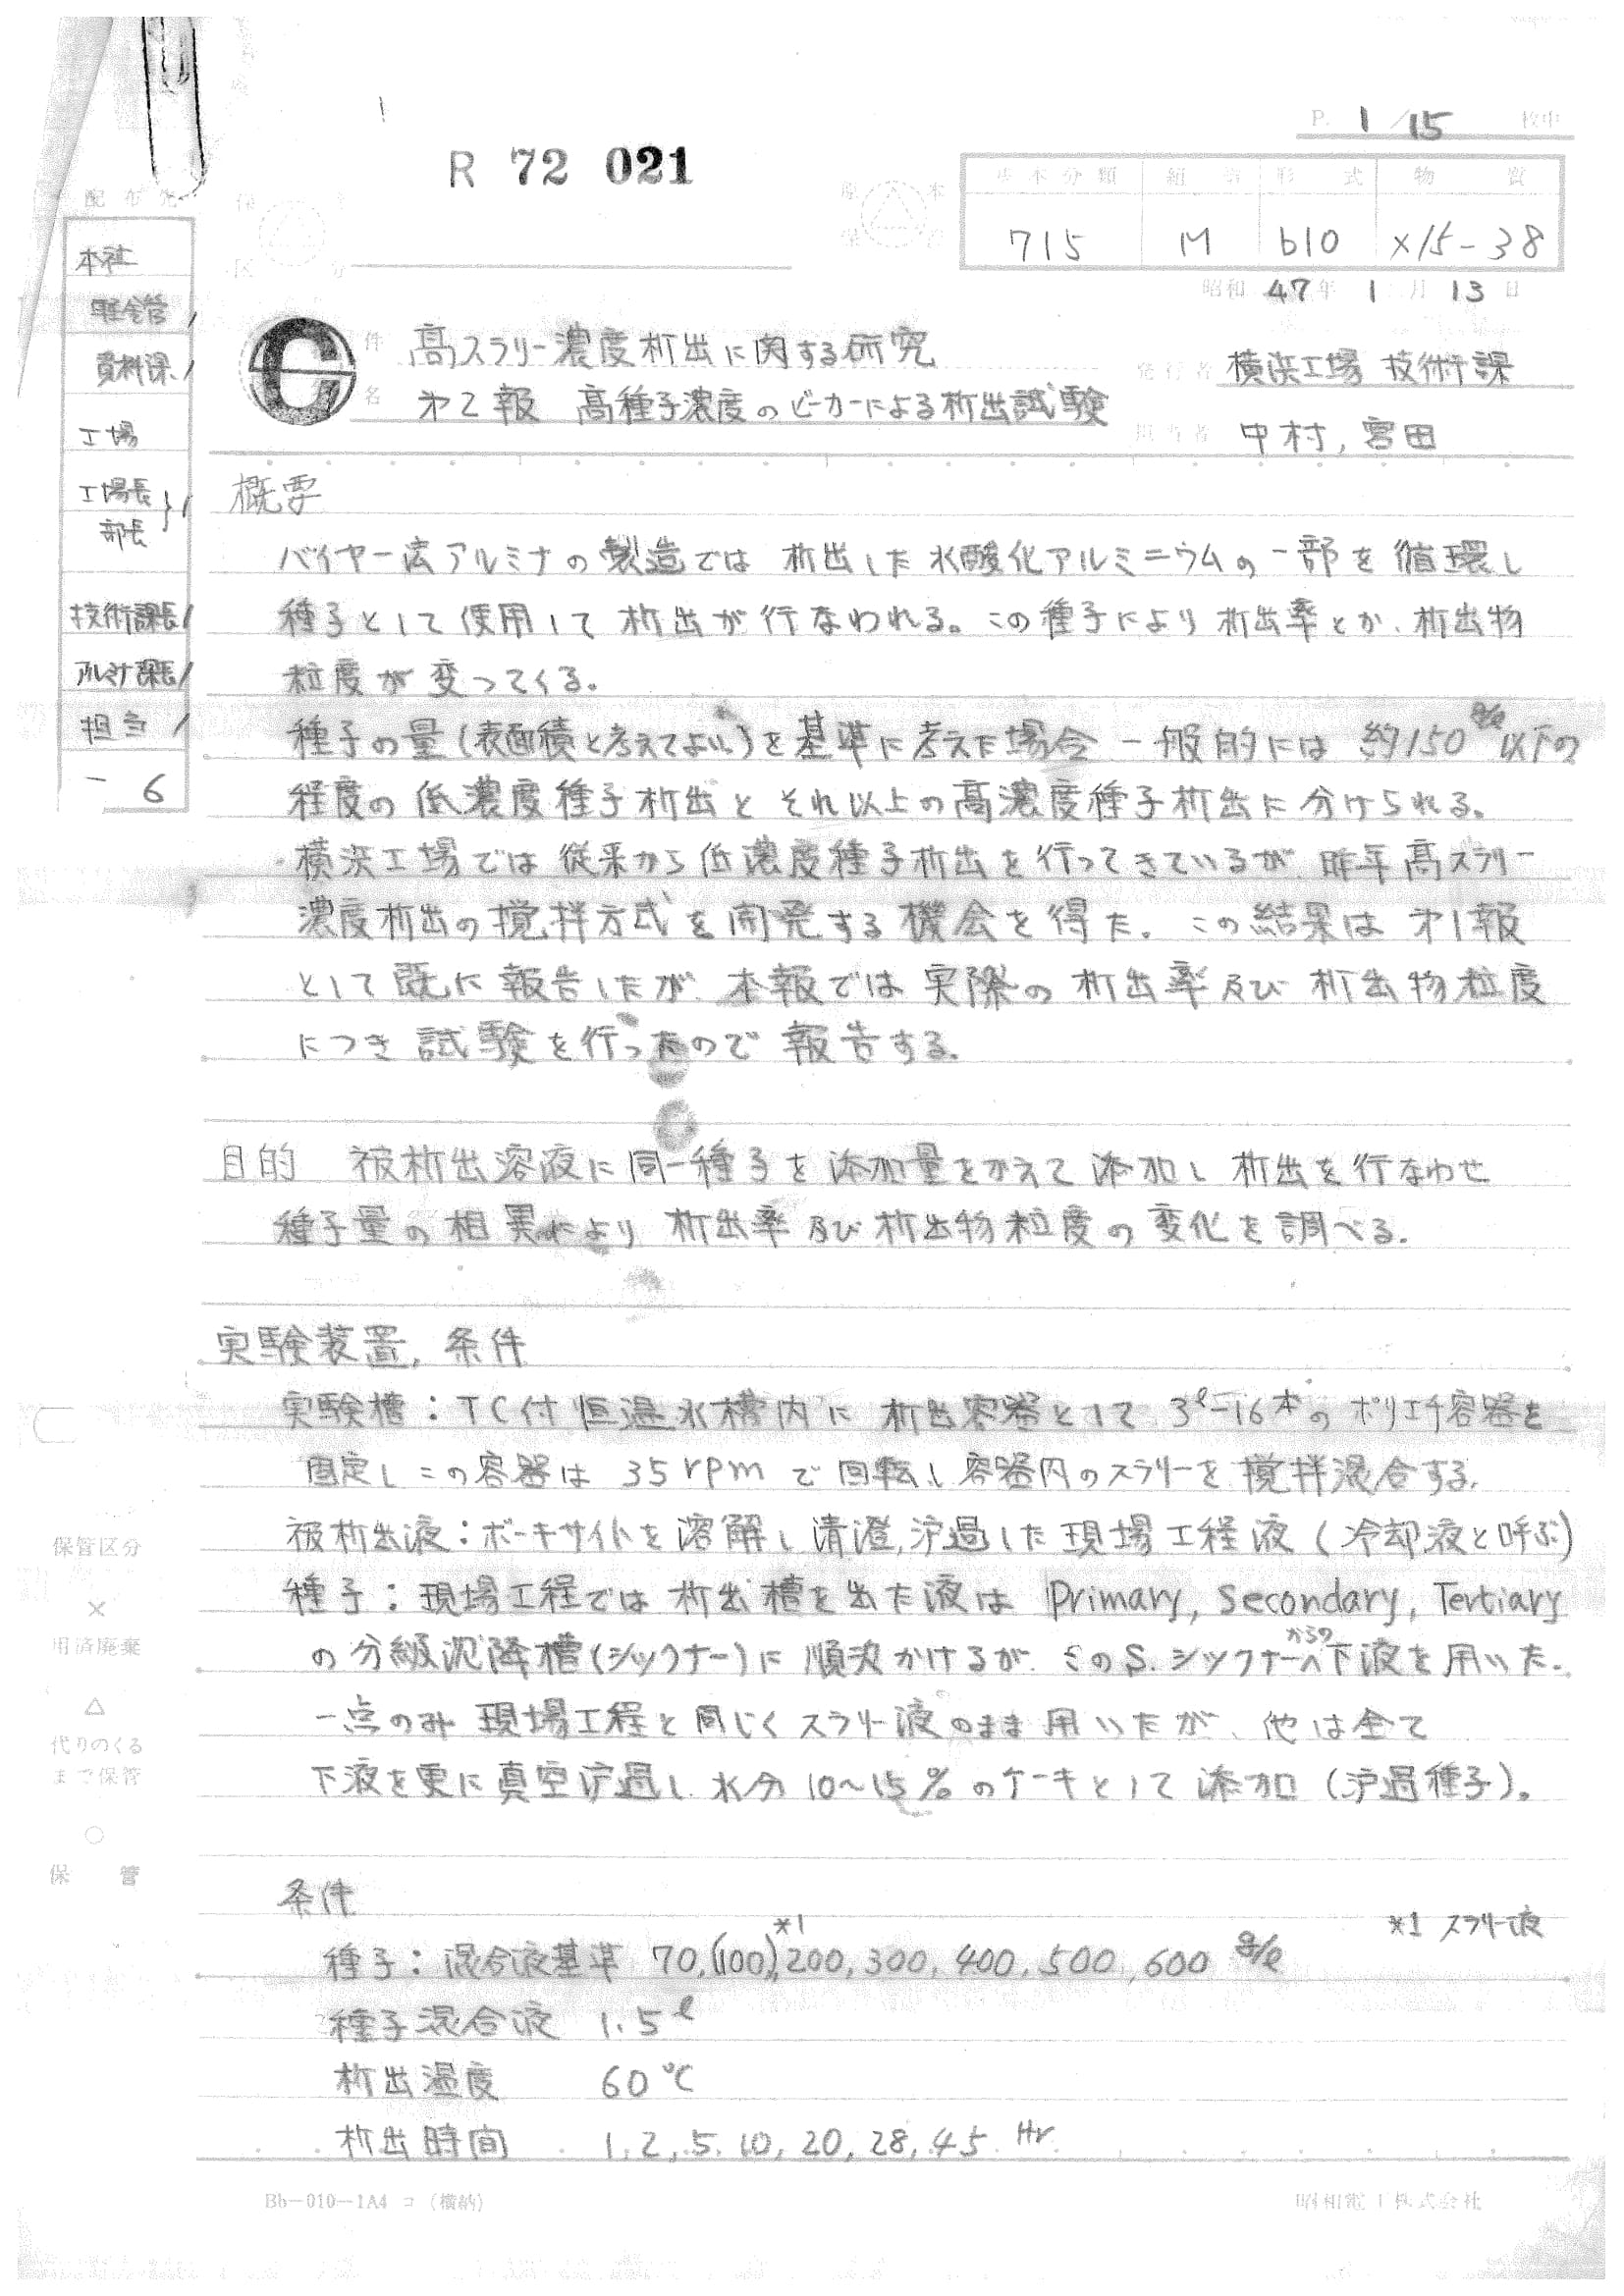 P. 1 / 15 枚中
R 72 021
基本分類 組 形式 物質
715 M b10 X15-38
昭和 47年 1月 13日
配布先
本社
軽金営 /
資料課 /
工場
工場長 } /
部長
技術課長 /
アルミナ課長 /
担当 /
- 6
件名 高スラリー濃度析出に関する研究
才2報 高種子濃度のビーカーによる析出試験
発行者 横浜工場 技術課
担当者 中村, 宮田
概要
バイヤー法アルミナの製造では 析出した水酸化アルミニウムの一部を循環し
種子として使用して析出が行なわれる。この種子により析出率とか、析出物
粒度が変ってくる。
種子の量(表面積と考えてよい)を基準に考えた場合 一般的には 約150 g/l 以下の
程度の低濃度種子析出と それ以上の高濃度種子析出に分けられる。
横浜工場では従来から低濃度種子析出を行ってきているが 昨年高スラリー
濃度析出の撹拌方式を開発する機会を得た。この結果は才1報
として既に報告したが 本報では実際の析出率及び析出物粒度
につき試験を行ったので報告する。
目的 被析出溶液に同一種子を添加量をかえて添加し析出を行なわせ
種子量の相異により析出率及び析出物粒度の変化を調べる.
実験装置, 条件
実験槽:TC付恒温水槽内に析出容器として 3l-16本のポリエチ容器を
固定しこの容器は 35rpm で回転し容器内のスラリーを撹拌混合する.
被析出液:ボーキサイトを溶解し清澄,沪過した現場工程液(冷却液と呼ぶ)
種子:現場工程では析出槽を出た液は Primary, Secondary, Tertiary
の分級沈降槽(シックナー)に順次かけるが. そのS.シックナーからの下液を用いた.
一点のみ現場工程と同じくスラリー液のまま用いたが、他は全て
下液を更に真空沪過し水分10~15%のケーキとして添加(沪過種子)。
条件
*1 スラリー液
種子:混合液基準 70,(100)*1,200,300,400,500,600 g/l
種子混合液 1.5l
析出温度 60℃
析出時間 1,2,5,10,20,28,45 Hr
保管区分
×
用済廃棄
△
代りのくる
まで保管
○
保管
Bb-010-1A4 コ (横納)
昭和電工株式会社